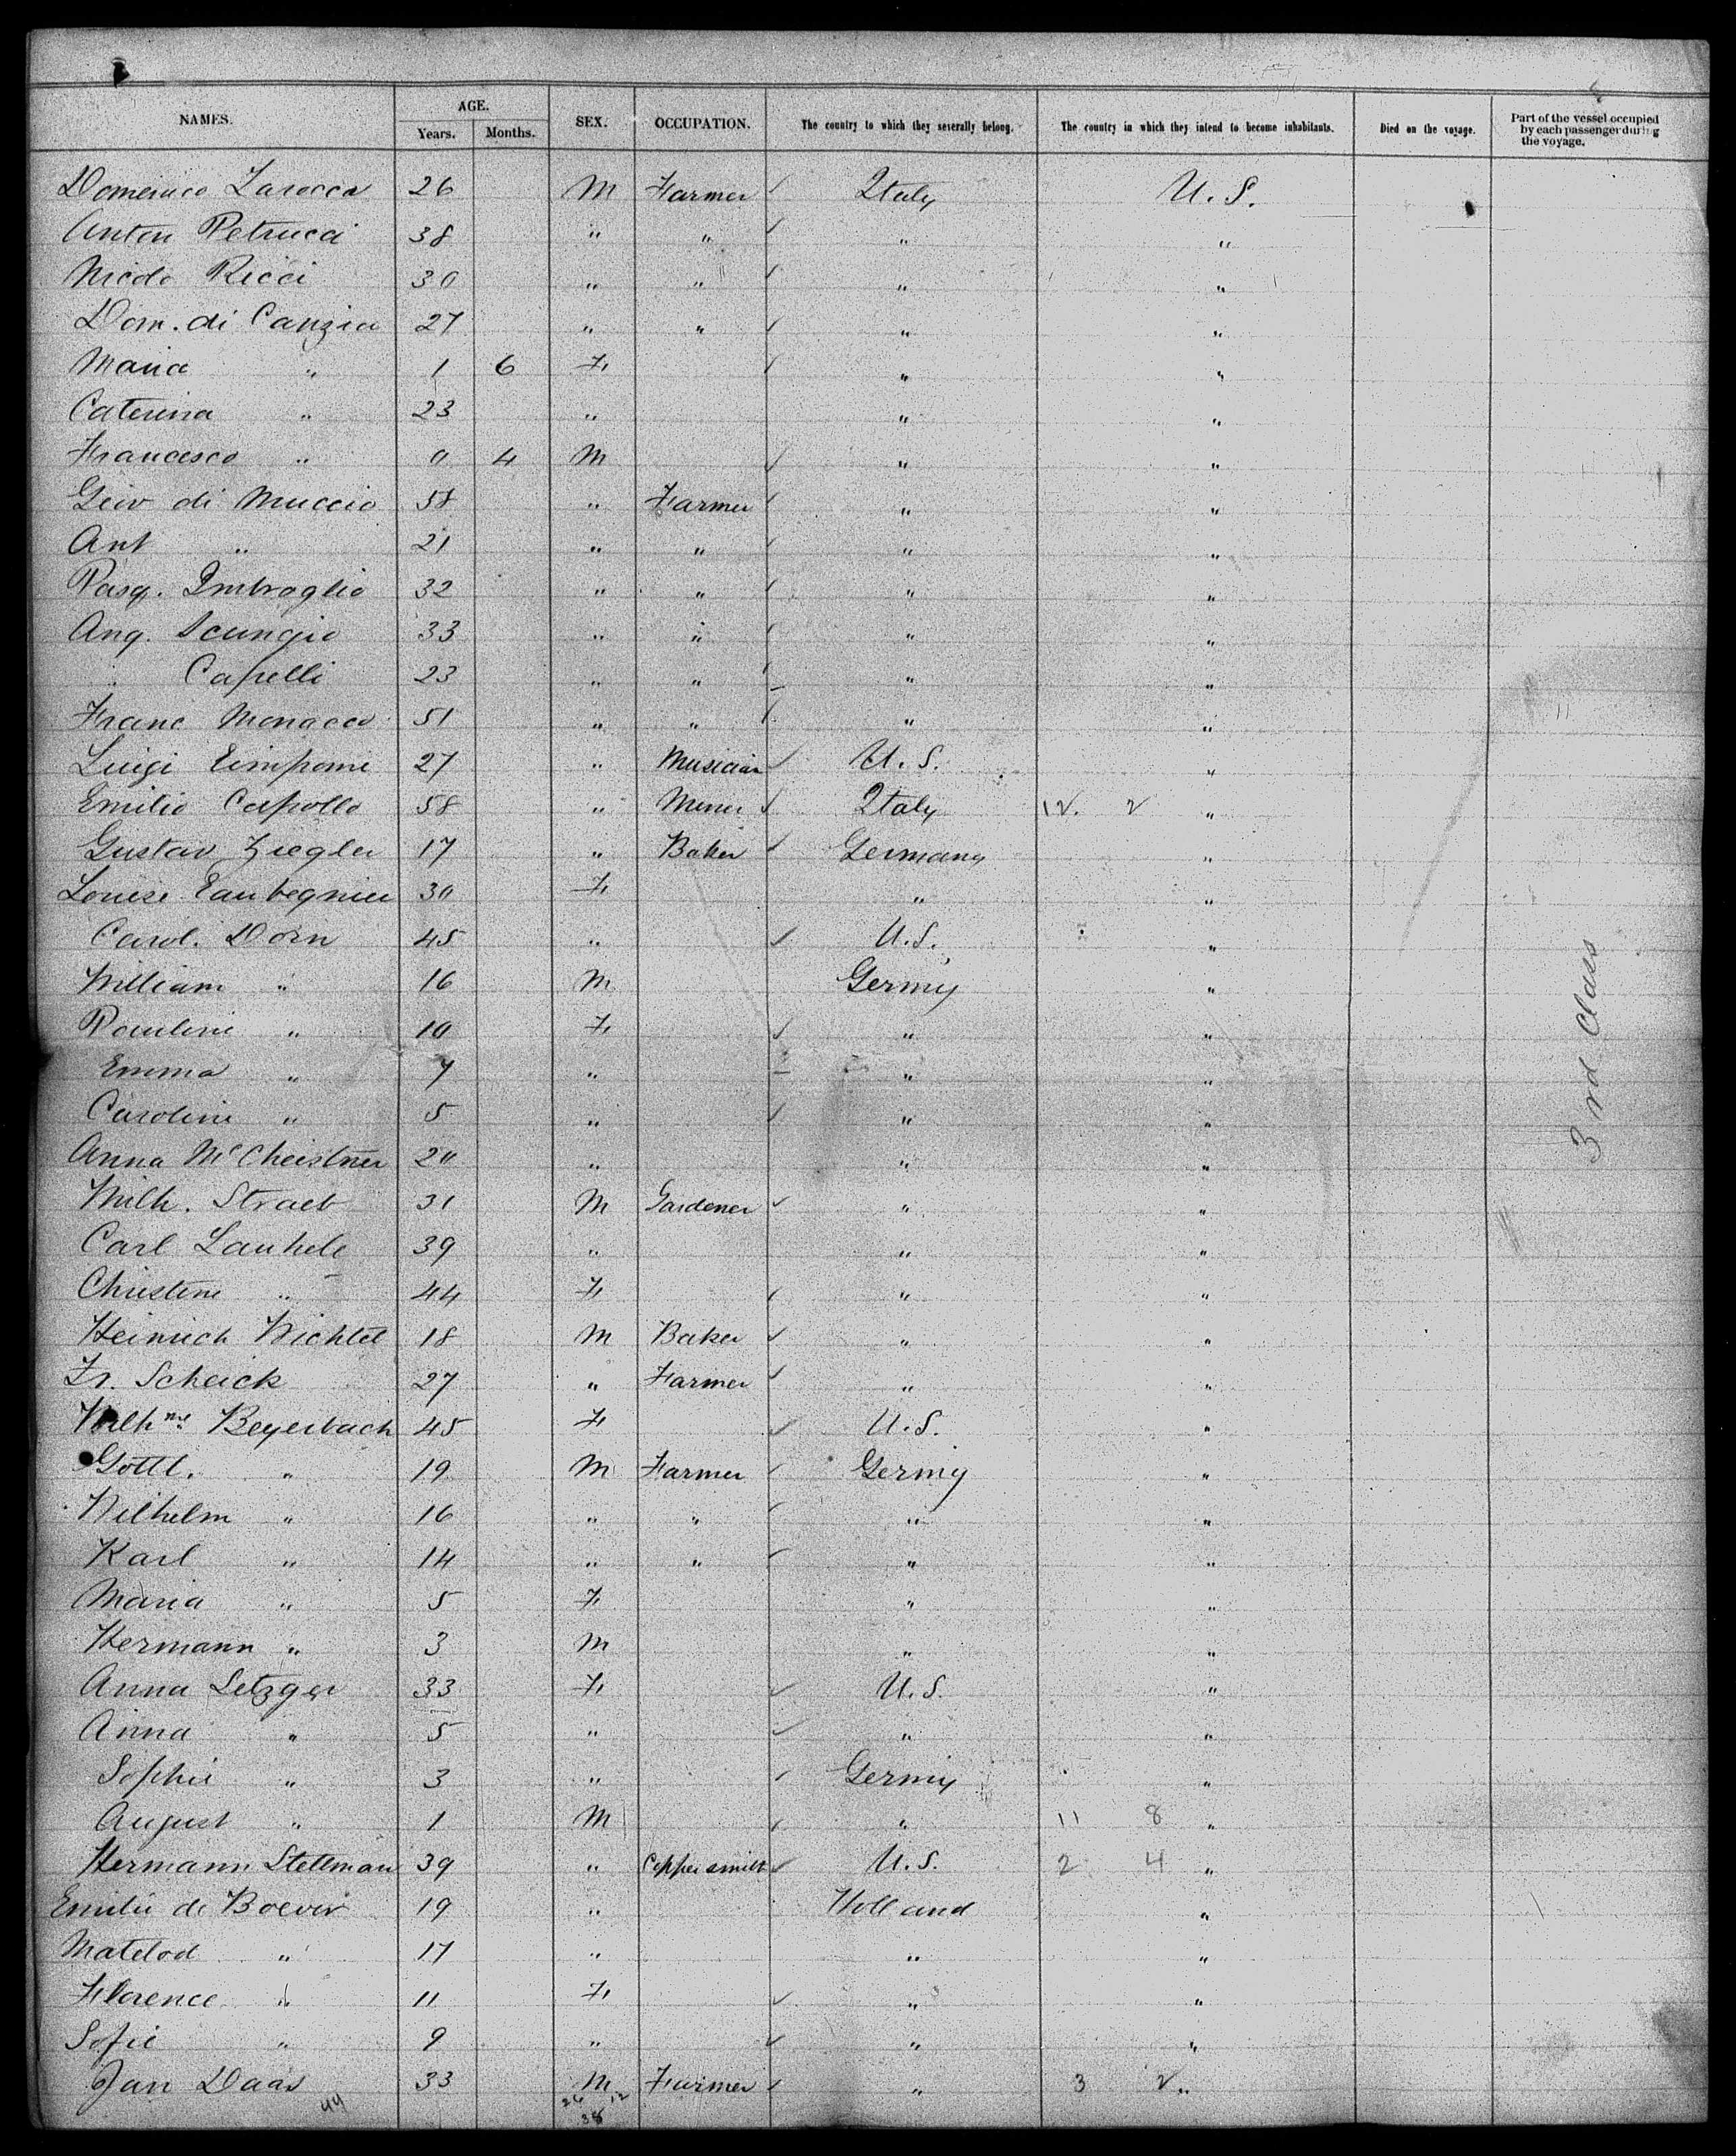 NAMES. AGE. SEX. OCCUPATION. The country to which they severally belong. The country in which they intend to become inhabitants. Died on the voyage. Part of the vessel occupied by each passenger during the voyage.
Years. Months.
Domenico Larocca 26 M Farmer ✓ Italy U. S.
Anton Petrucci 38 " " ✓ " "
Nicolo Ricci 30 " " ✓ " "
Dom. di Canzia 27 " " ✓ " "
Maria " 1 6 F. ✓ " "
Caterina " 23 " " "
Francesco " 0 4 M ✓ " "
Giov di Muccio 58 " Farmer ✓ " "
Ant " 21 " " ✓ " "
Pasq. Imbroglio 32 " " ✓ " "
Ang. Scungio 33 " " ✓ " "
" Capelli 23 " " ✓ " "
Franc Monacco 51 " " ✓ " "
Luigi 27 " Musician ✓ U. S. "
Emilio Capollo 58 " Miner ✓ Italy 12. 2 "
Gustav Ziegler 17 " Baker ✓ Germany "
Louise 30 F. " "
Carol. Dorn 45 " ✓ U.S. "
William " 16 M Germy "
Pauline " 10 F. ✓ " "
Emma " 7 " " "
Caroline " 5 " ✓ " "
Anna McCheistner 20 " " "
Wilh. Straeb 31 M Gardener ✓ " "
Carl Lauhele 39 " " "
Christine " 44 F. ✓ " "
Heinrich Wichtel 18 M Baker ✓ " "
Fr. Scheick 27 " Farmer ✓ " "
Wilhne Beyerbach 45 F ✓ U.S. "
Gottl. " 19 M Farmer ✓ Germy "
Wilhelm " 16 " " ✓ " "
Karl " 14 " " ✓ " "
Maria " 5 F. " "
Hermann " 3 M " "
Anna Setzger 33 F. ✓ U.S. "
Anna " 5 " ✓ " "
Sophie " 3 " ✓ Germy "
August " 1 M ✓ " 11 8 "
Hermann Stellman 39 " Coppersmith ✓ U.S. 2 4 "
Emilie de Boever 19 " Holland "
Matelod " 17 " " "
Florence " 11 F. ✓ " "
Sofie " 9 " ✓ " "
Jan Daas 33 M Farmer ✓ " 3 2 "
44 26 12
38
3rd Class